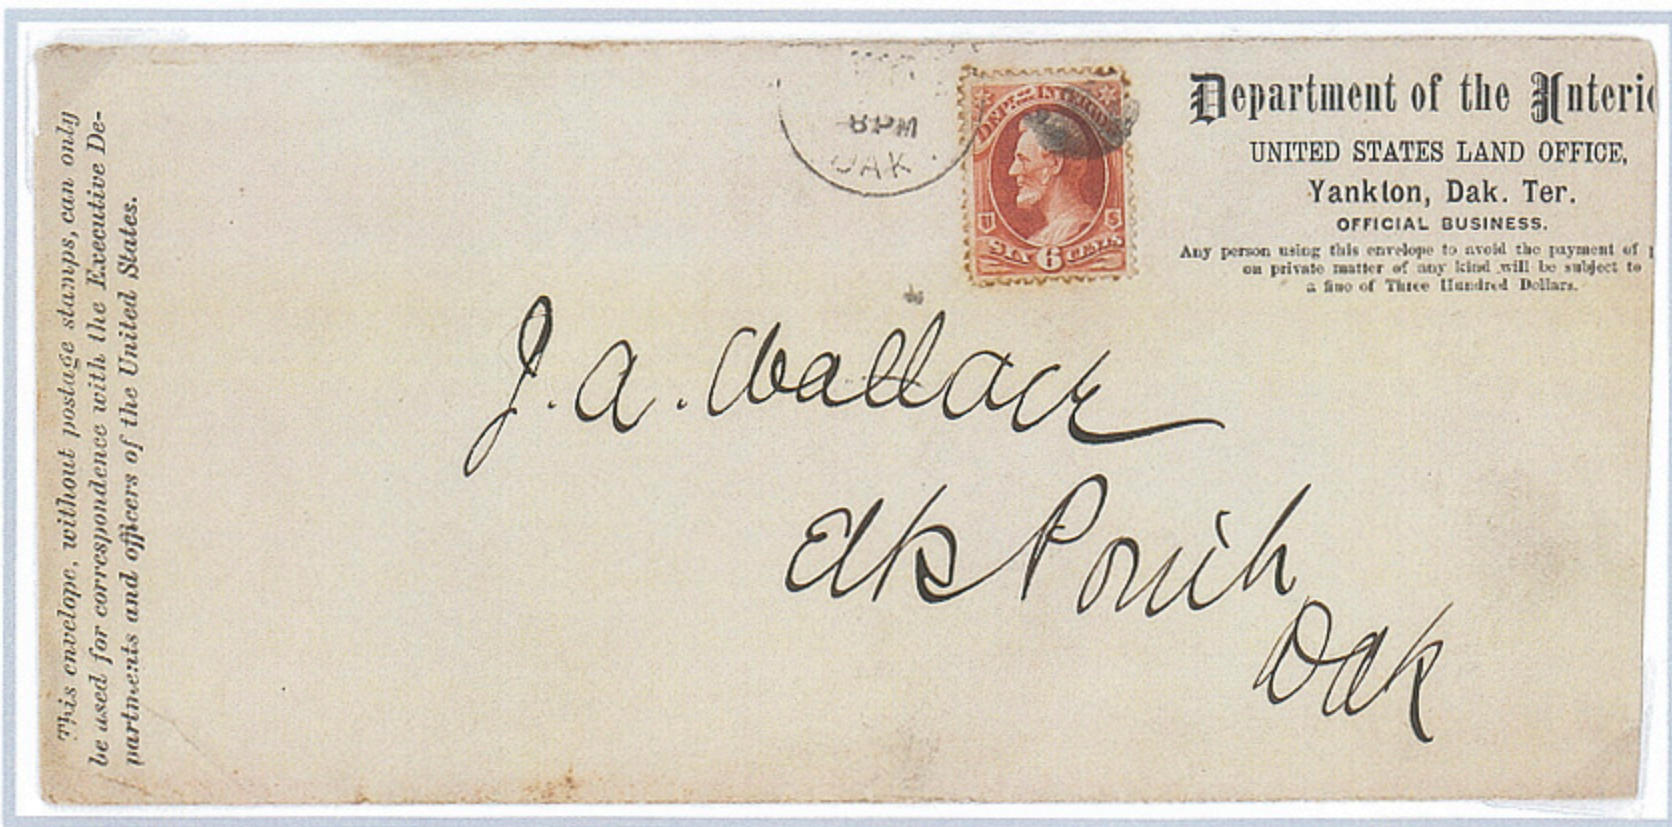 This envelope, without postage stamps, can only
be used for correspondence with the Executive De-
partments and officers of the United States.
8 PM
DAK.
DEPT. OF THE INTERIOR
U S
SIX 6 CENTS
Department of the Interio
UNITED STATES LAND OFFICE,
Yankton, Dak. Ter.
OFFICIAL BUSINESS.
Any person using this envelope to avoid the payment of p
on private matter of any kind will be subject to
a fine of Three Hundred Dollars.
J. A. Wallace
Elk Point
Dak